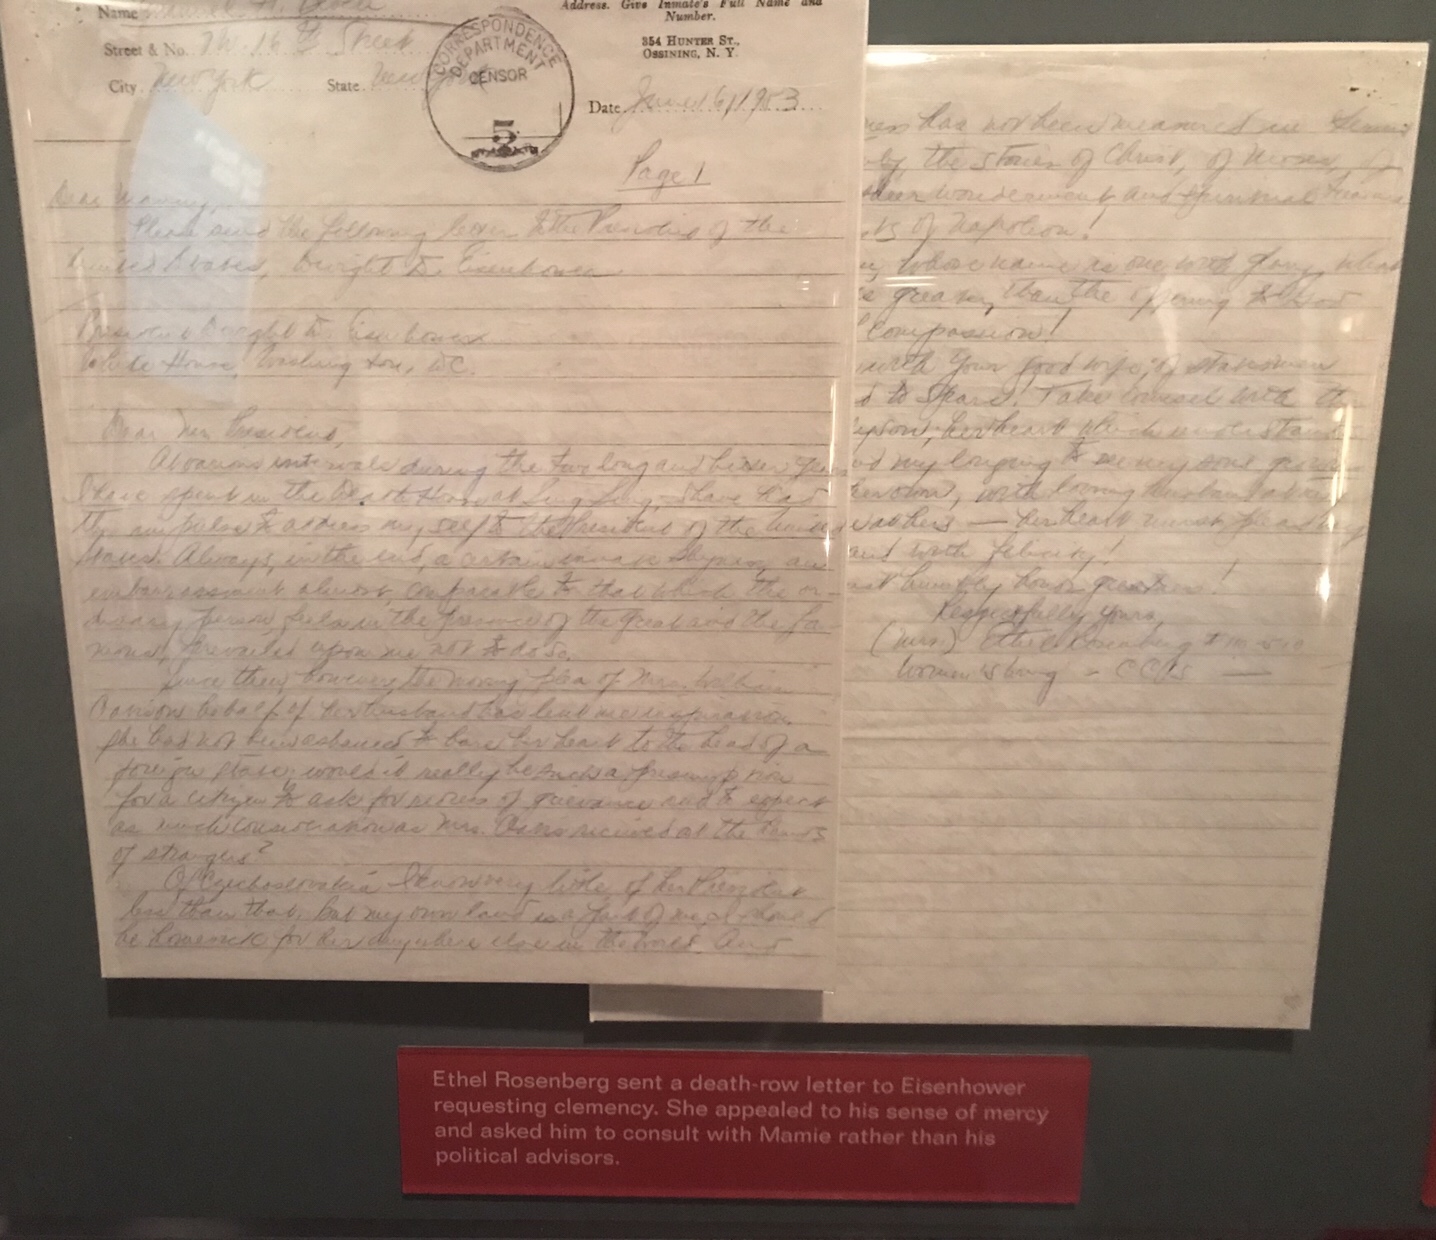 Name
Address. Give Inmate's Full Name and
Number.
Street & No. 7 W. 16 Street
354 HUNTER ST.,
OSSINING, N. Y.
City New York State New York
CORRESPONDENCE
DEPARTMENT
CENSOR
5
Date June 16, 1953
Page 1
Dear Manny,
Please send the following letter to the President of the
United States, Dwight D. Eisenhower
President Dwight D. Eisenhower
White House, Washington, D.C.
Dear Mr. President,
At various intervals during the two long and bitter years
I have spent in the Death House at Sing Sing, I have had
the impulse to address myself to the President of the United
States. Always, in the end, a certain innate shyness, an
embarrassment almost, comparable to that which the or-
dinary person feels in the presence of the great and the fa-
mous, prevailed upon me not to do so.
Since then, however, the moving plea of Mrs. William
Oatis on behalf of her husband has lent me inspiration.
She had not been ashamed to bare her heart to the head of a
foreign state; would it really be such a presumption
for a citizen to ask for redress of grievance and to expect
as much consideration as Mrs. Oatis received at the hands
of strangers?
Of Czechoslovakia I know very little, of her President
less than that. But my own land is a part of me, I should
be homesick for her anywhere else in the world. And
has not been measured in
by the stories of Christ, of Moses, of
and spiritual
of Napoleon!
whose name is one with glory, what
greater than the offering to God
compassion!
with your good wife; of statesmen
to spare. Take counsel with the
her heart which understands
my longing to see my sons grown
with loving husband
— her heart must plead my
with felicity!
humbly honor greatness!
Respectfully yours,
(Mrs.) Ethel Rosenberg # 110-510
Women's Wing - CCDS
Ethel Rosenberg sent a death-row letter to Eisenhower
requesting clemency. She appealed to his sense of mercy
and asked him to consult with Mamie rather than his
political advisors.